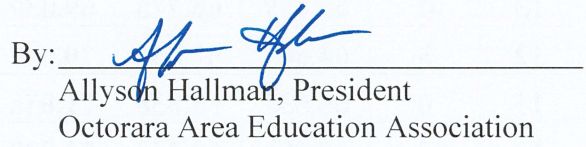 By:
Allyson Hallman, President
Octorara Area Education Association